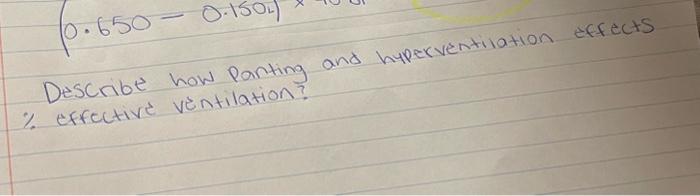 (0.650 - 0.150L) ×
Describe how Panting and hyperventilation effects
% effective ventilation?